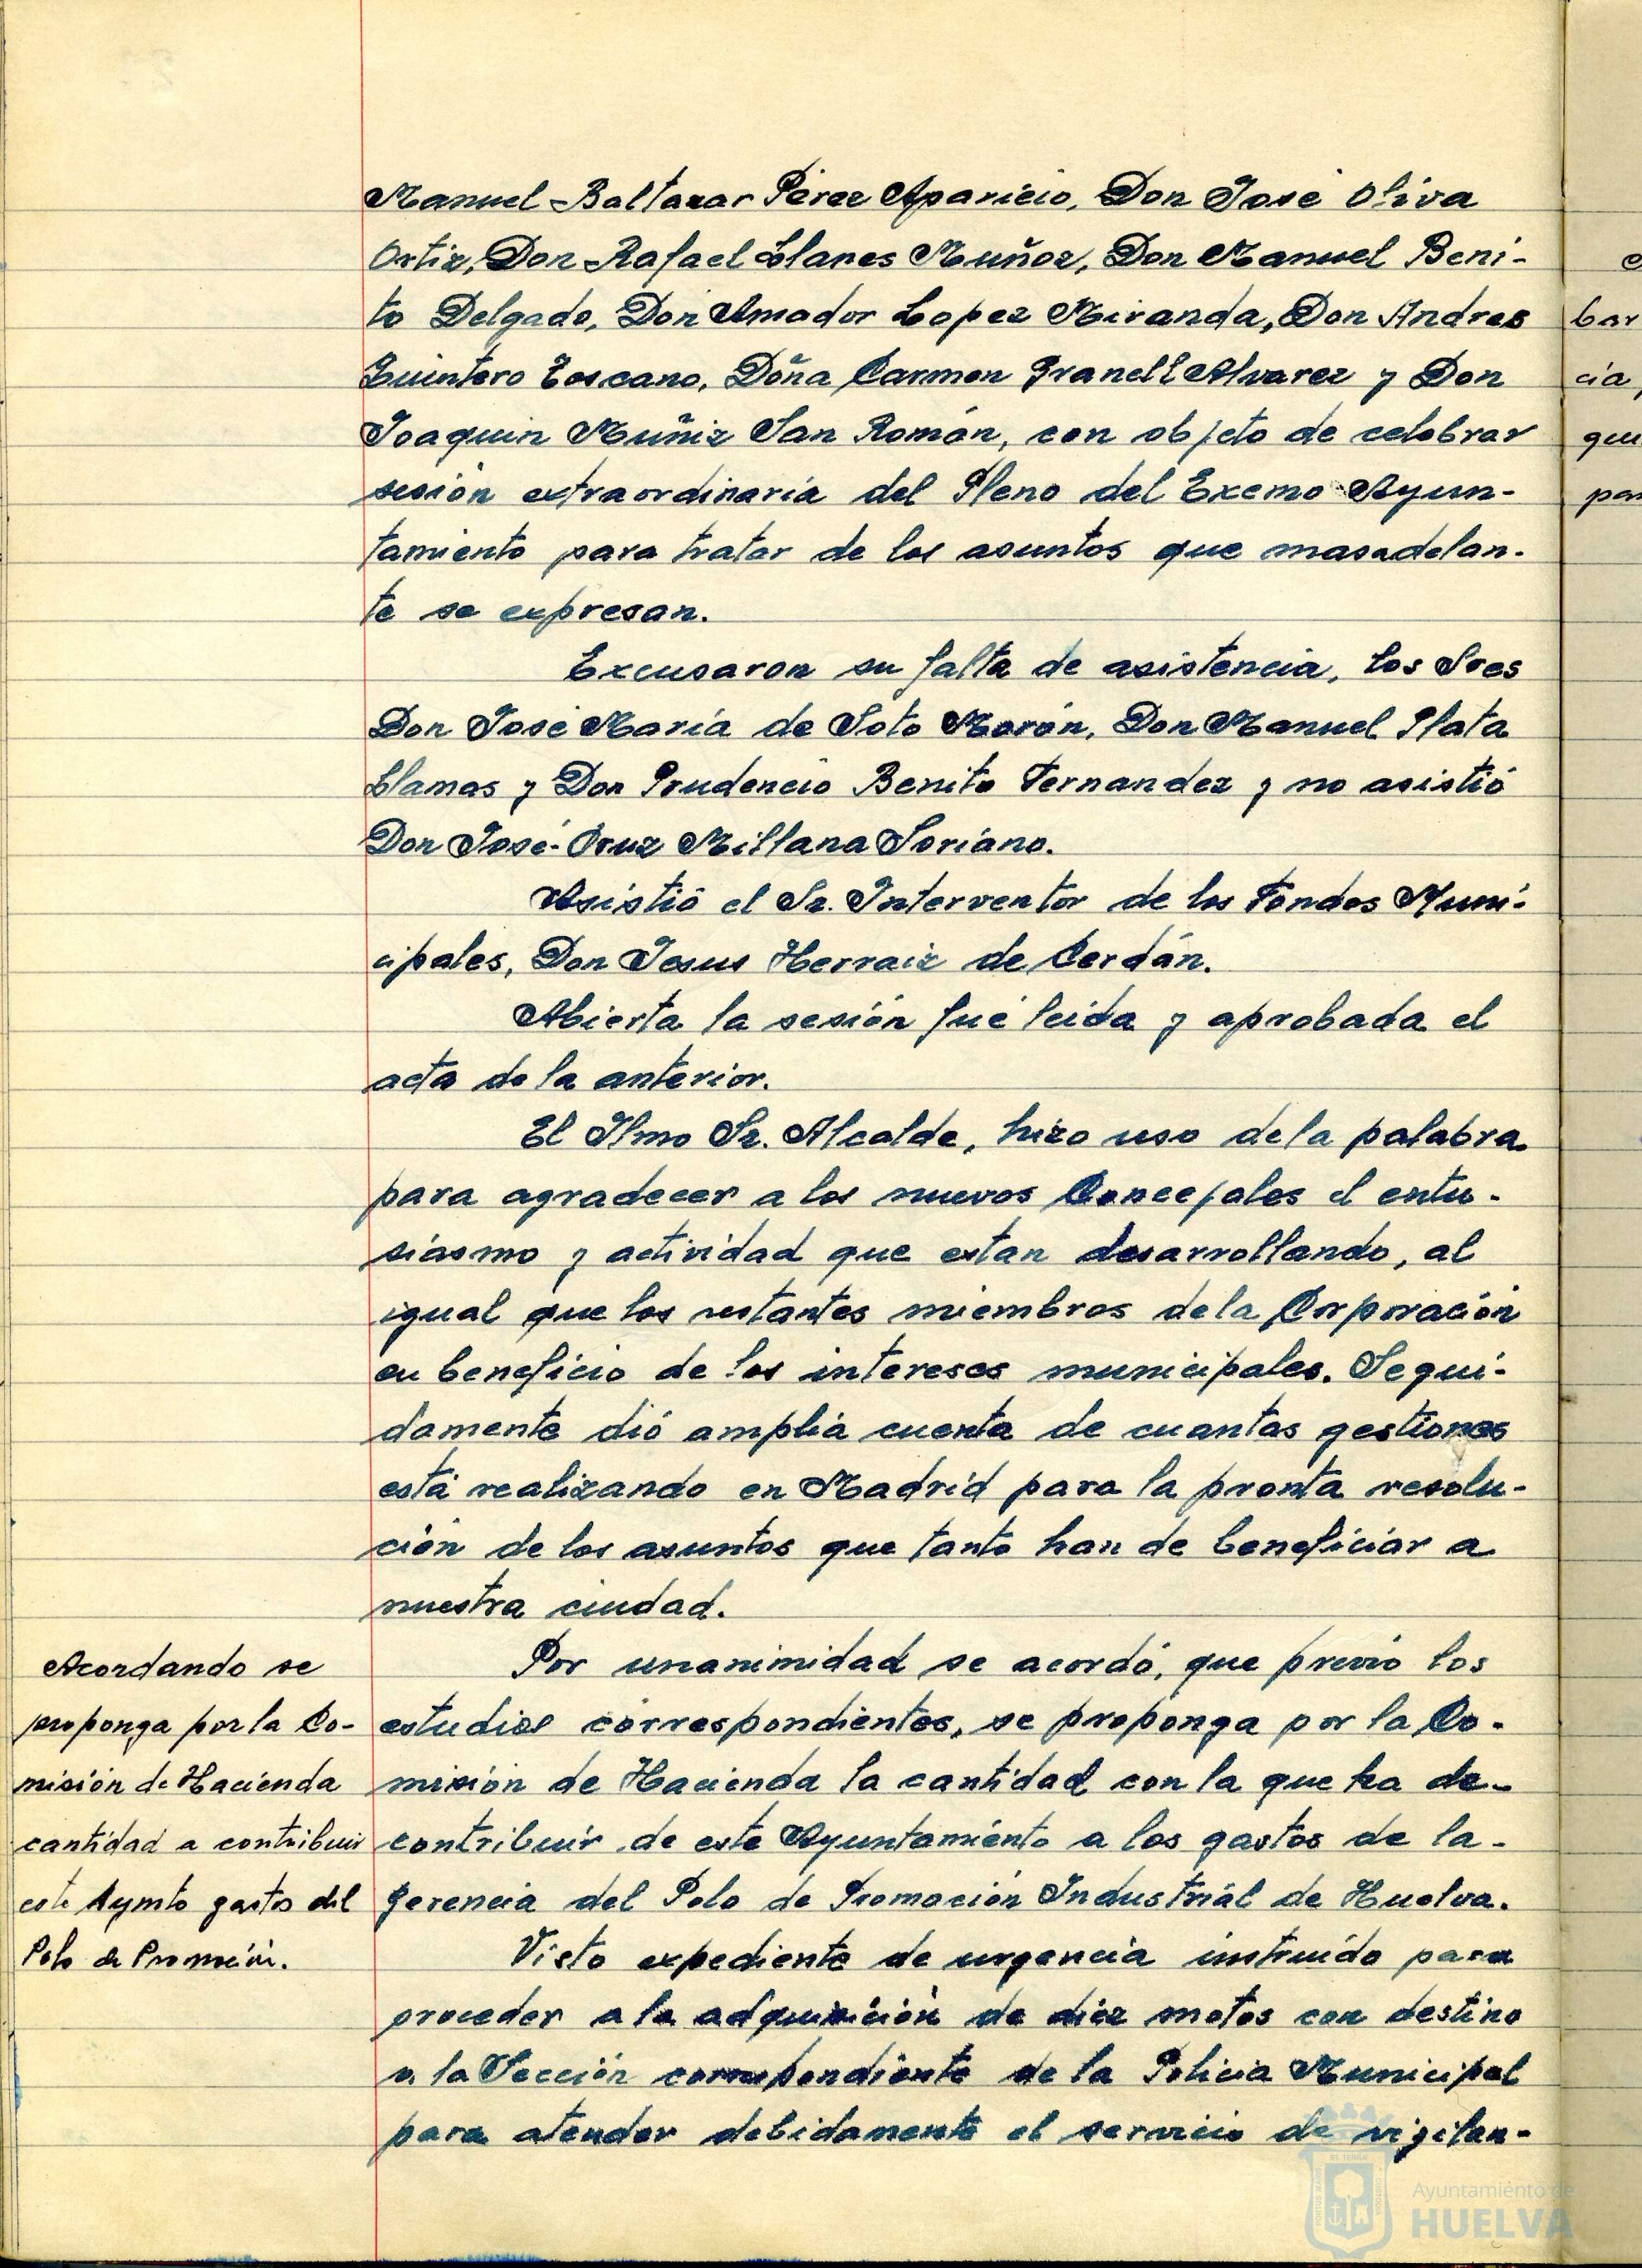 Manuel Baltazar Pérez Aparicio, Don José Oliva
Ortiz, Don Rafael Llanes Muñoz, Don Manuel Beni-
to Delgado, Don Amador Lopez Miranda, Don Andres
Quintero Toscano, Doña Carmen Granell Alvarez y Don
Joaquin Muñiz San Román, con objeto de celebrar
sesión extraordinaria del Pleno del Excmo Ayun-
tamiento para tratar de los asuntos que mas adelan-
te se expresan.
Excusaron su falta de asistencia, los Sres
Don José María de Soto Morón, Don Manuel Plata
Llamas y Don Prudencio Benito Fernandez y no asistió
Don José-Cruz Millana Soriano.
Asistió el Sr. Interventor de los Fondos Muni-
cipales, Don Jesus Herraiz de Cerdán.
Abierta la sesión fué leida y aprobada el
acta de la anterior.
El Ilmo Sr. Alcalde, hizo uso de la palabra
para agradecer a los nuevos Concejales el entu-
siasmo y actividad que estan desarrollando, al
igual que los restantes miembros de la Corporación
en beneficio de los intereses municipales. Segui-
damente dió amplia cuenta de cuantas gestiones
está realizando en Madrid para la pronta resolu-
ción de los asuntos que tanto han de beneficiar a
nuestra ciudad.
Acordando se
proponga por la Co-
misión de Hacienda
cantidad a contribuir
este Aymto gastos del
Polo de Promoción.
Por unanimidad se acordó, que previo los
estudios correspondientes, se proponga por la Co-
misión de Hacienda la cantidad con la que ha de-
contribuir de este Ayuntamiento a los gastos de la-
Gerencia del Polo de Promoción Industrial de Huelva.
Visto expediente de urgencia instruido para
proceder a la adquisición de diez motos con destino
a la Sección correspondiente de la Policia Municipal
para atender debidamente el servicio de vigilan-
bar
cia,
que
Ayuntamiento de
HUELVA